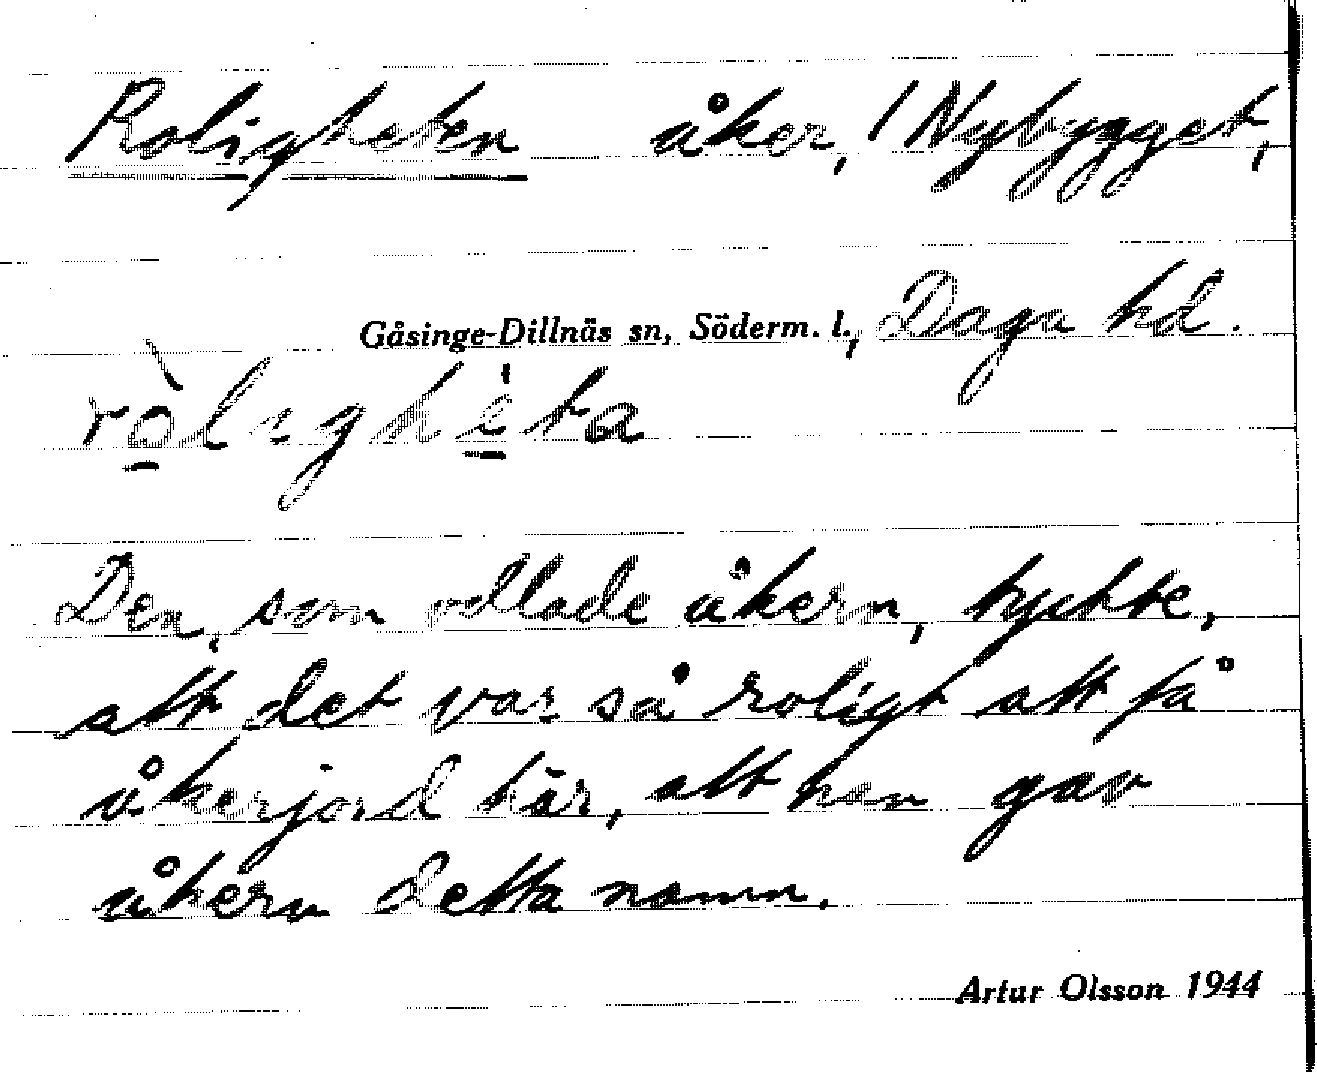 Roligheten åker, 1 Nybygget,
Gåsinge-Dillnäs sn, Söderm. l., Daga hd.
ròlighèta
Den, som odlade åkern, tyckte,
att det var så roligt att få
åkerjord här, att han gav
åkern detta namn.
Artur Olsson 1944